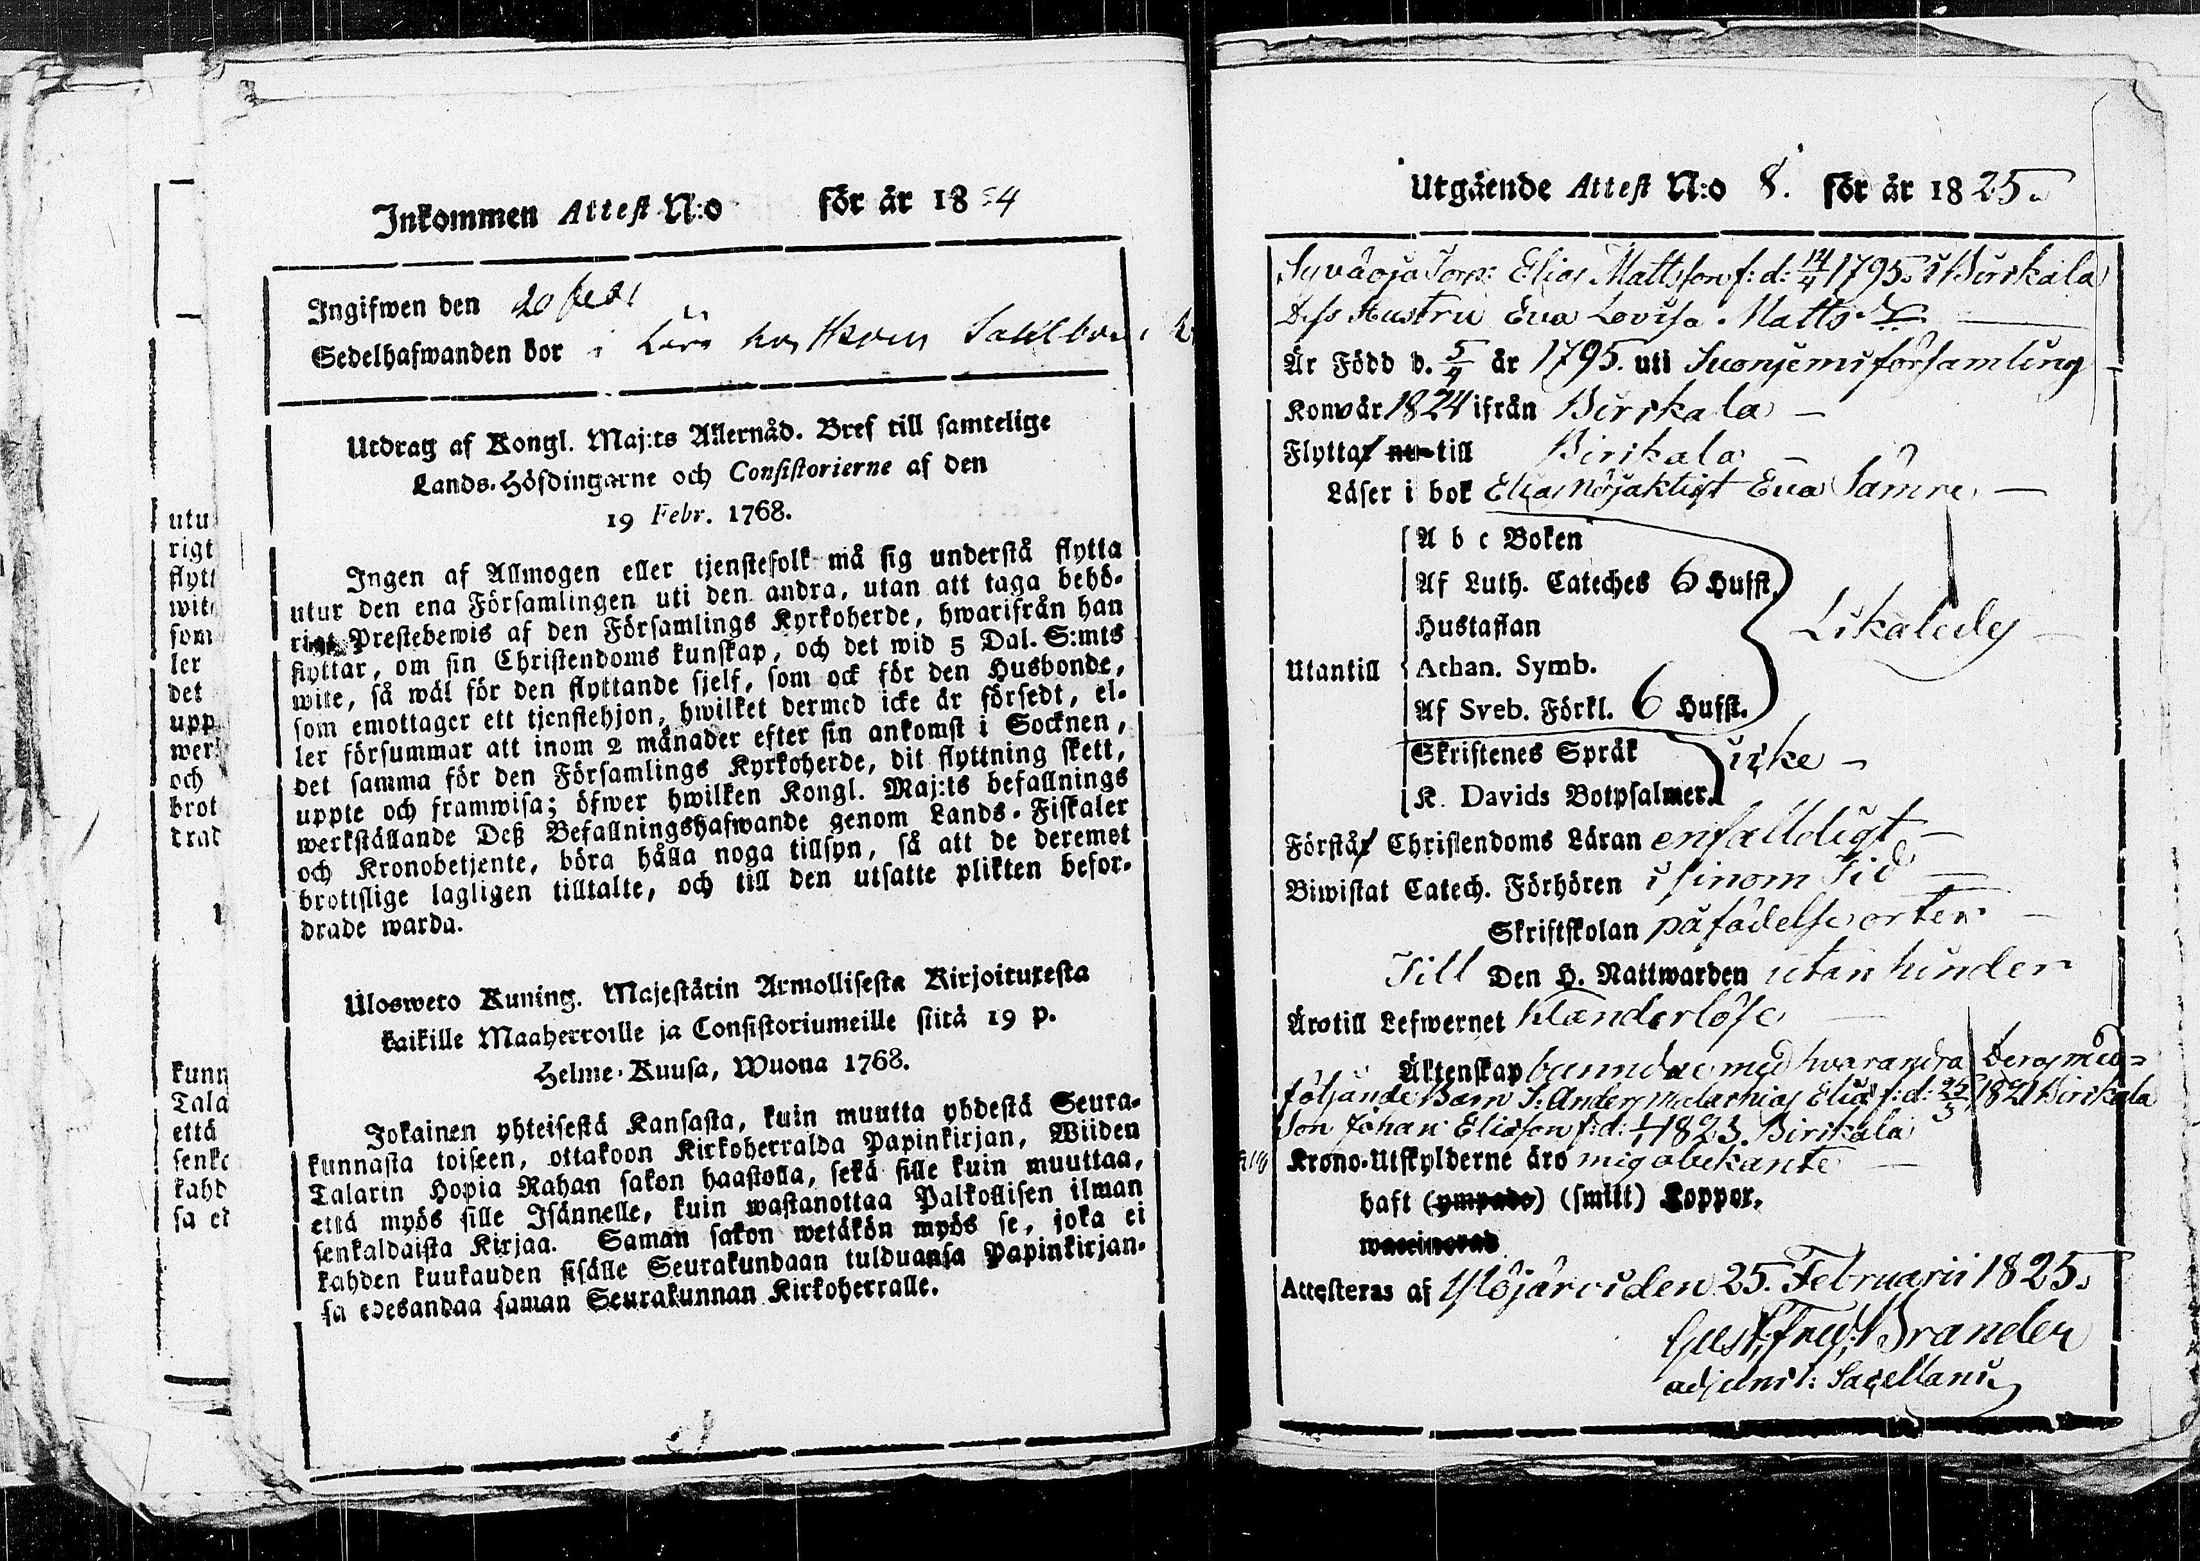 Inkommen Attest N:o för år 18 24
Ingifwen den 20
Sedelhafwanden bor i
Utdrag af Kongl. Maj:ts Allernåd. Bref till samtelige
Lands-Höfdingarne och Consistorierne af den
19 Febr. 1768.
Ingen af Allmogen eller tjenstefolk må sig understå flytta
utur den ena Församlingen uti den andra, utan att taga behö-
rigt Prestebewis af den Församlings Kyrkoherde, hwarifrån han
flyttar, om sin Christendoms kunskap, och det wid 5 Dal. S:mts
wite, så wäl för den flyttande sjelf, som ock för den Husbonde,
som emottager ett tjenstehjon, hwilket dermed icke är försedt, el-
ler försummar att inom 2 månader efter sin ankomst i Socknen,
det samma för den Församlings Kyrkoherde, dit flyttning skett,
uppte och framwisa; öfwer hwilken Kongl. Maj:ts befallnings
werkställande Deß Befallningshafwande genom Lands-Fiskaler
och Kronobetjente, böra hålla noga tillsyn, så att de deremot
brottslige lagligen tilltalte, och till den utsatte plikten befor-
drade warda.
Ulosweto Kuning. Majestätin Armollisesta Kirjoituxesta
kaikille Maaherroille ja Consistoriumeille siitä 19 p.
Helme-Kuusa, Wuona 1768.
Jokainen yhteisestä Kansasta, kuin muutta yhdestä Seura-
kunnasta toiseen, ottakoon Kirkoherralda Papinkirjan, Wiiden
Talarin Hopia Rahan sakon haastolla, sekä sille kuin muuttaa,
että myös sille Isännelle, kuin wastanottaa Palkollisen ilman
senkaldaista Kirjaa. Saman sakon wetäkön myös se, joka ei
kahden kuukauden sisälle Seurakundaan tulduansa Papinkirjan-
sa edesandaa saman Seurakunnan Kirkoherralle.
utu
rigt
flytt
wite
som
ler
det
upp
wer
och
brot
drad
kunn
Tala
että
senk
kahd
sa ed
Utgående Attest N:o 8. för år 1825.
Syväoja Torp: Elias Mattsson f: d: 14/4 1795. i Birkala
Dess Hustru Eva Lovisa Matts D.
Är Född d. 5/4 år 1795. uti Suonjemi församling
Kom år 1824 ifrån Birkala
Flyttar nu till Birkala
Läser i bok Elias nöjaktigt Eva Sämre
A b c Boken
Af Luth. Cateches 6 Hufst.
Hustaflan
Utantill Athan. Symb. Likaledes
Af Sveb. Förkl. 6 Hufst.
Skriftenes Språk icke
K. Davids Botpsalmer.
Förstår Christendoms Läran enfalldigt
Biwistat Catech. Förhören i sinom tid
Skriftskolan på födelse orten
Till Den H. Nattwarden utan hinder
Äro till Lefwernet klanderlöse
Äktenskap bundne med hvarandra deras med=
följande Barn S: Anders Malachias Elias f: d: 25/3 1821 Birkala
Son Johan Eliasson f: d: 1/1 1823. Birkala
Krono-Utskylderne äro mig obekante
haft (ympade) (smitt) Koppor.
waccinerad
Attesteras af Ylöjärvi den 25. Februarii 1825.
Gust. Fred. Brander
adjunct: Sacellani